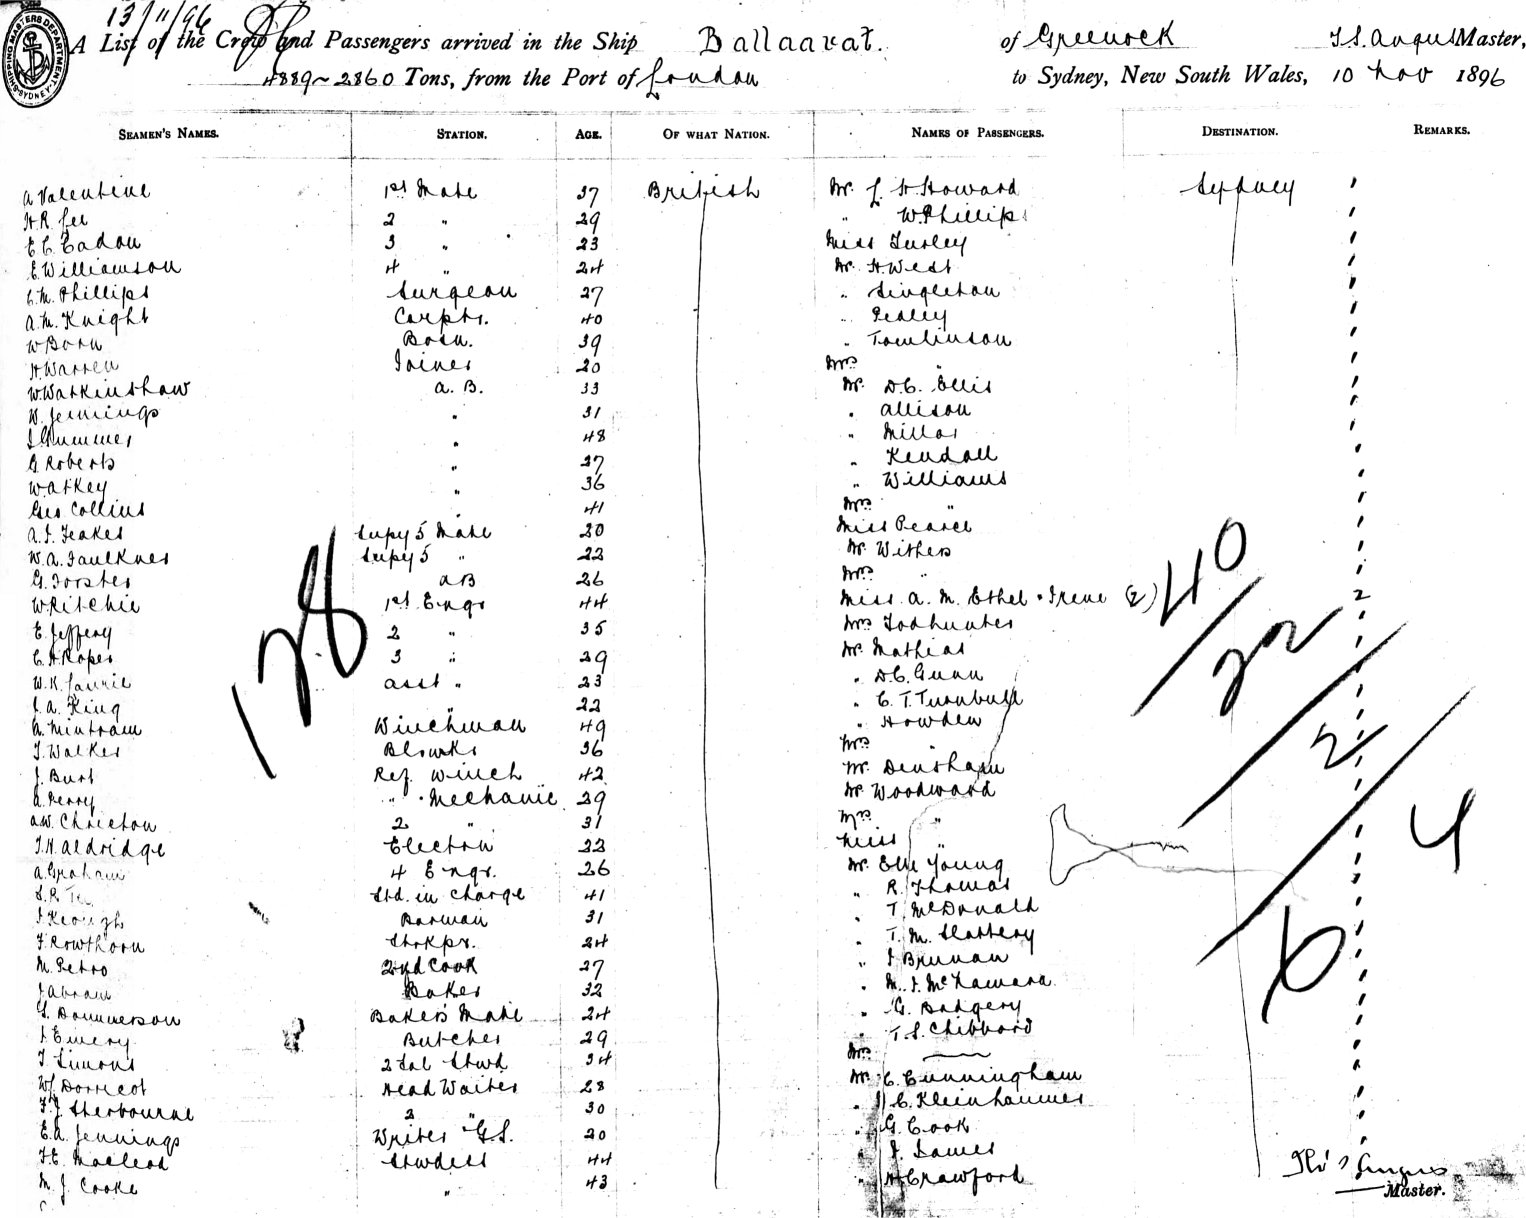 13/11/96
SHIPPING MASTERS DEPARTMENT SYDNEY
A List of the Crew and Passengers arrived in the Ship Ballaarat. of Greenock T.S. Angus Master,
4889~2860 Tons, from the Port of London to Sydney, New South Wales, 10 Nov 1896
SEAMEN'S NAMES. STATION. AGE. OF WHAT NATION. NAMES OF PASSENGERS. DESTINATION. REMARKS.
A Valentine 1st Mate 37 British Mr L H Howard Sydney
H.R. Lee 2 " 29 " W Phillips
E C Eadon 3 " 23 Miss Turley
E. Williamson 4 " 24 Mr H. West
C.M. Phillips Surgeon 27 " Singleton
A.M. Knight Carptr. 40 " Pedley
W Born Bosn. 39 " Tomlinson
H Warren Joiner 20 Mrs "
W Watkinshaw A.B. 33 Mr. D.C. Ellis
W. Jennings " 31 " Allison
J Grummer " 48 " Millar
G Roberts " 27 " Kendall
W Atkey " 36 " Williams
Geo Collins " 41 Mrs "
A.J. Feakes Supy 5 Mate 20 Miss Pearce
W.A. Faulkner Supy 5 " 22 Mr Withers
G. Forster AB 26 Mrs "
W Ritchie 1st Engr 44 Miss A. M. Ethel & Irene (2) 2
E. Jeffery 2 " 35 Mrs Todhunter
C.H. Roper 3 " 29 Mr Mathias
W.K. Laurie asst " 23 " D.C. Gunn
J.A. King " 22 " C.T. Turnbull
A. Mintram Winchman 49 " Howden
T. Walker 36 Mrs "
J. Burt Ref. Winch 42 Mr. Densham
A. Perry " Mechanic 29 Mr Woodward
A.W. Christon 2 " 31 Mrs "
T.H. Aldridge Electrn 22 Miss "
A. Graham 4 Engr. 26 Mr Young
Std. in charge 41 " R. Thomas
J Keough Barman 31 " T. McDonald
F. Rowthorn Strkpr. 24 " T. M. Slattery
M. Petro 2nd Cook 27 " J Brunan
J Abram Baker 32 " M. J. McNamara
G. Dannerson Baker's Mate 24 " G. Badgery
J Emery Butcher 29 " T.S. Chibbard
T Simons 2 Sal Stwd 34 Mrs
W. Dorricot Head Waiter 28 Mr C. Cunningham
F.J. Sherbourne 2 " 30 " C. Kleinhammer
E.A. Jennings Writer G.S. 20 " G. Cook
F.E. Macleod Stwdess 44 " J. James
M. J. Cooke " 43 " H Crawford
128
40
22
2
4
Thos S Angus
Master.